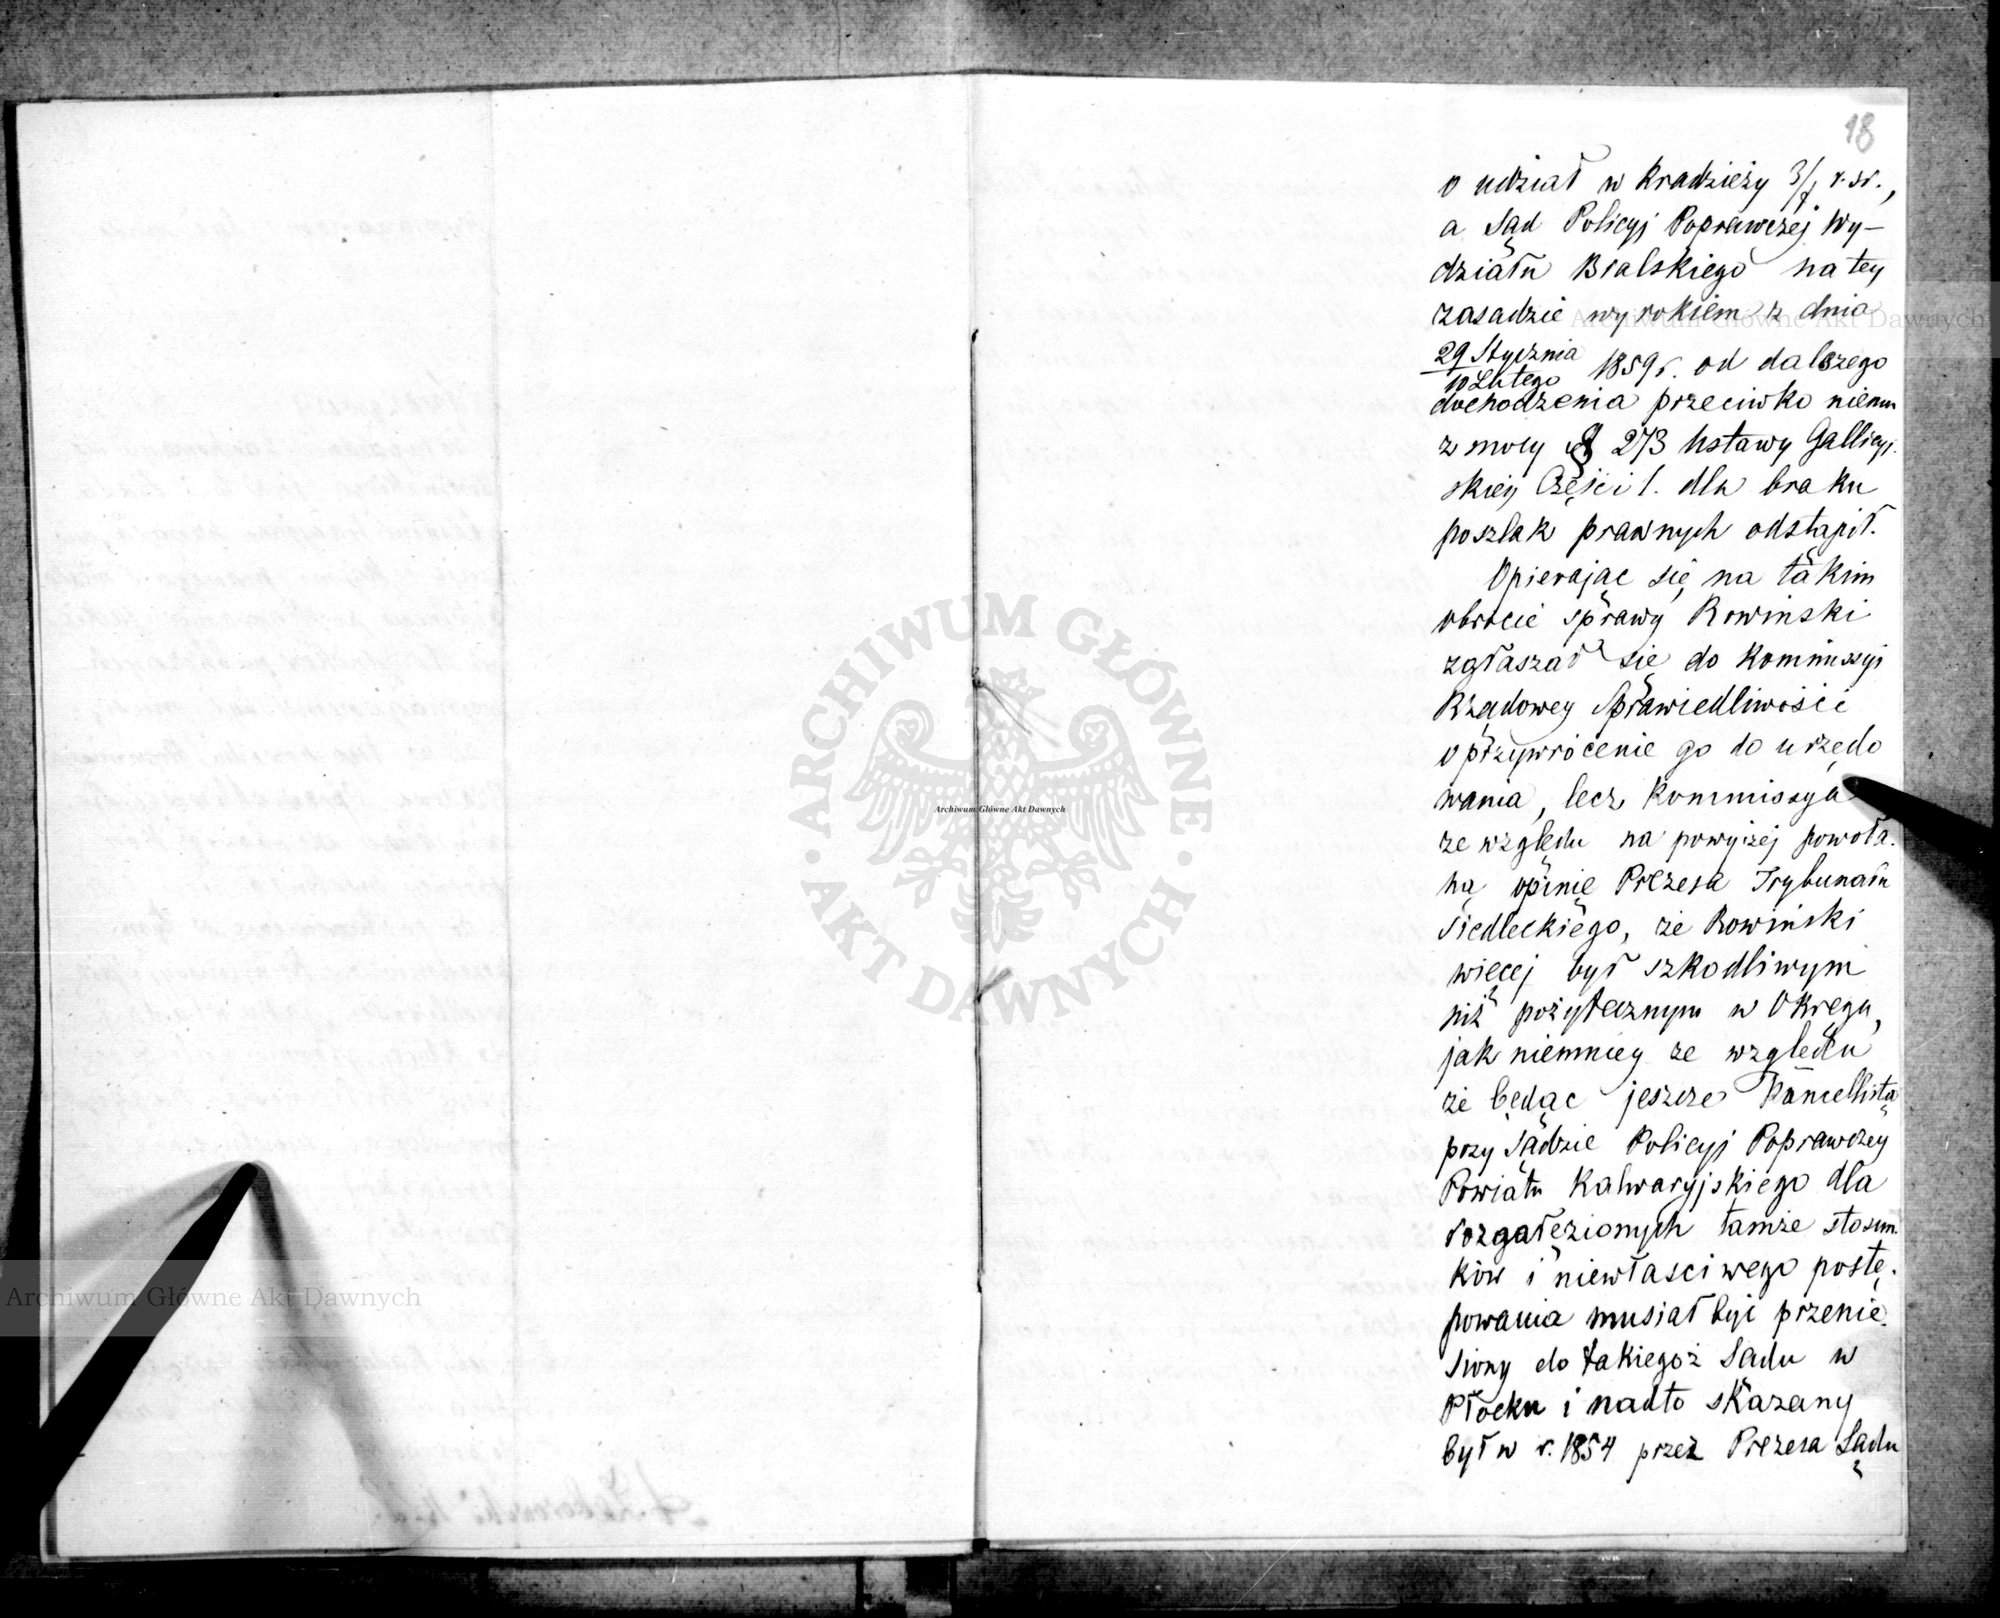 18
o udział w kradzieży r. sr.,
a Sąd Policyj Poprawczej Wy-
działu Bialskiego na tey
zasadzie wyrokiem z dnia
29 Stycznia
10 Lutego 1859 r. od dalszego
dochodzenia przeciwko niemu
z mocy § 273 Ustawy Gallicyj-
skiéj Części I. dla braku
poszlak prawnych odstąpił.
Opierając się na takim
obrocie sprawy Rowiński
zgłaszał się do Kommissyi
Rządowey Sprawiedliwości
o przywrócenie go do urzędo
wania, lecz Kommissya
ze względu na powyżéj powoła-
ną opinię Prezesa Trybunału
Siedleckiego, że Rowiński
więcej był szkodliwym
niż pożytecznym w Okręgu,
jak niemniey ze względu
że będąc jeszcze Kancellistą
przy Sądzie Policyi Poprawczey
Powiatu Kalwaryjskiego dla
rozgałęzionych tamże stosun-
ków i niewłasciwego postę-
powania musiał byi przenie-
siony do takiegoż Sadu w
Płocku i nadto skazany
był w r. 1854 przez Prezesa Sądu
Archiwum Główne Akt Dawnych
Archiwum Główne Akt Dawnych
Archiwum Główne Akt Dawnych
ARCHIWUM GŁÓWNE
AKT DAWNYCH